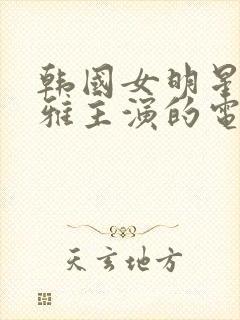 韩国女明星
雅主演的电
天玄地方